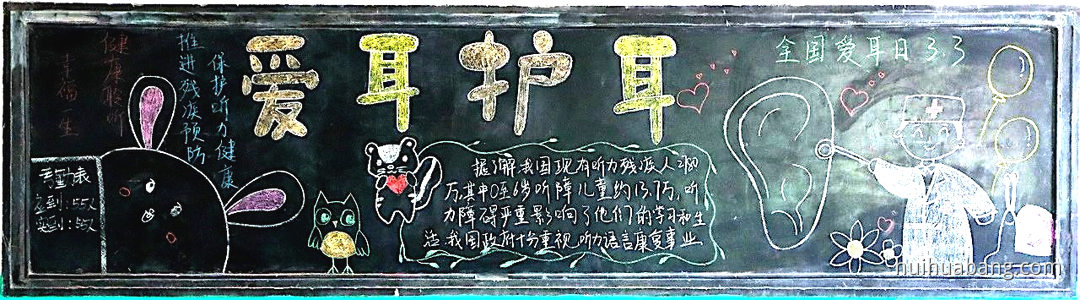 健康聆听
幸福一生
推进残疾预防
保护听力健康
爱耳护耳
全国爱耳日3.3
据了解我国现有听力残疾人2780
万,其中0至6岁听障儿童约13.7万,听
力障碍严重影响了他们的学习和生
活,我国政府十分重视听力语言康复事业
huihuabang.com